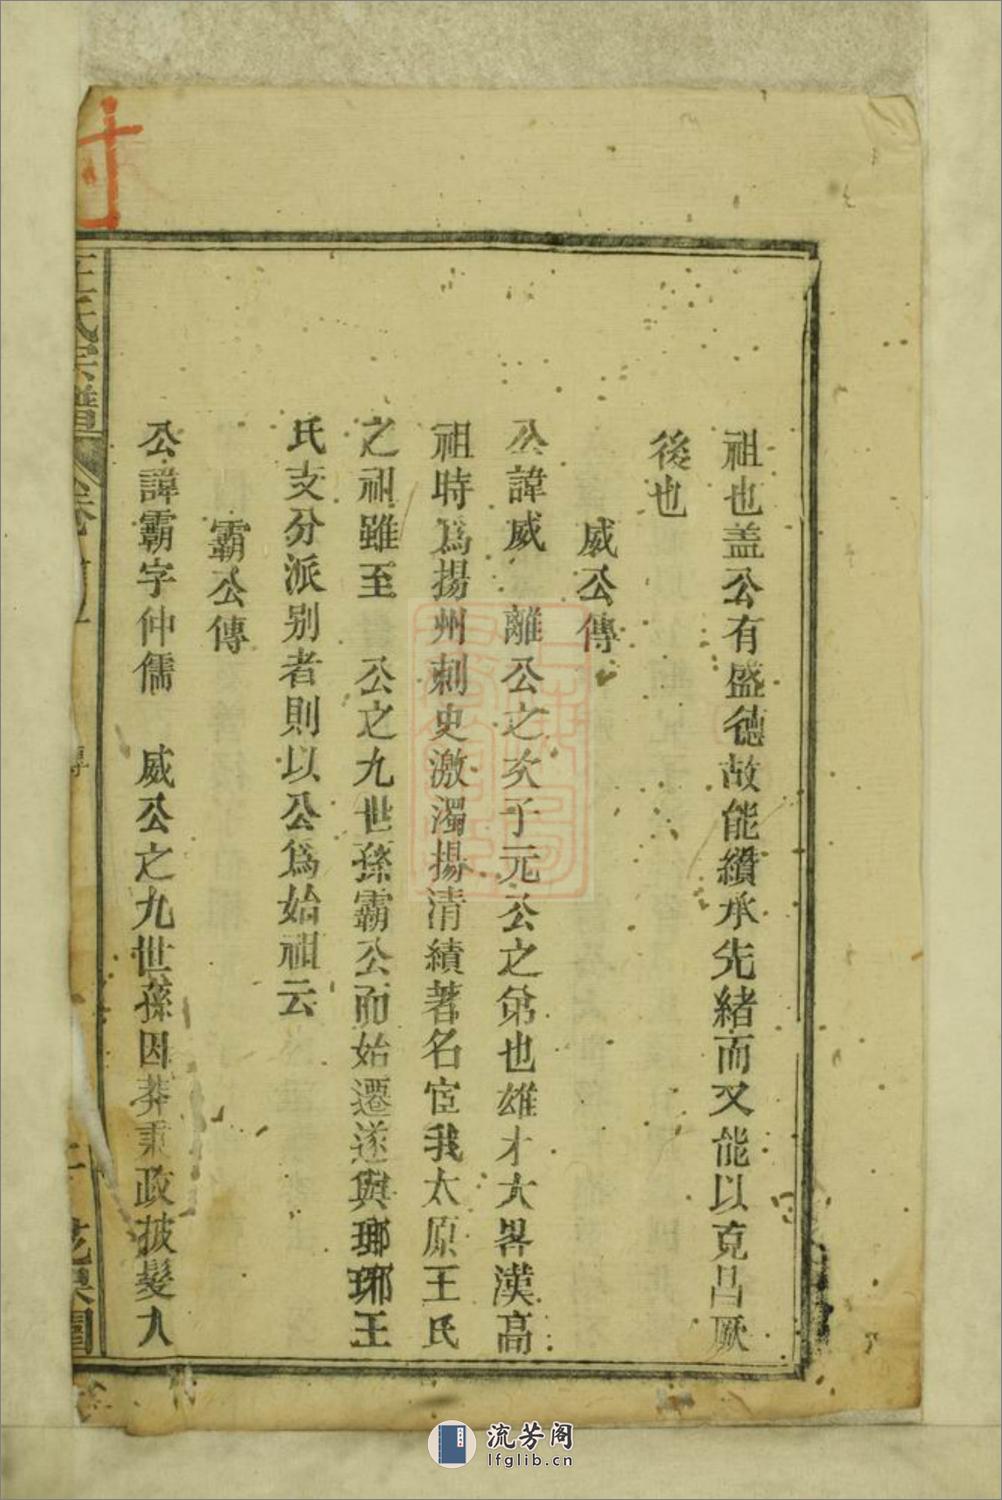 祖也盖公有盛德故能纘承先緒而又能以克昌厥
後也
威公傳
公諱威 離公之次子元公之弟也雄才大畧漢高
祖時爲揚州刺史激濁揚清績著名宦我太原王氏
之祖雖至 公之九世孫霸公而始遷遂與瑯琊王
氏支分派别者則以公爲始祖云
霸公傳
公諱霸字仲儒 威公之九世孫因莽秉政披髮入
王氏宗譜
卷
傳
流芳阁
lfglib.cn